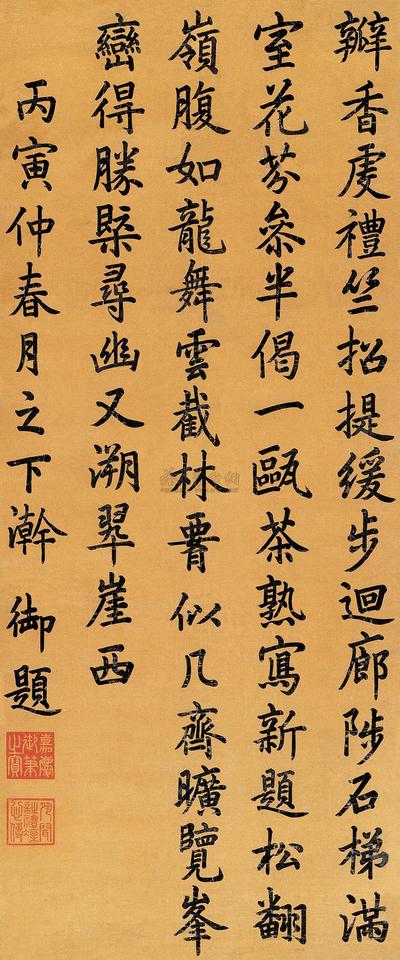 瓣香虔禮竺招提緩步迴廊陟石梯滿
室花芬參半偈一甌茶熟寫新題松翻
嶺腹如龍舞雲截林腰似几齊曠覽峯
巒得勝槩尋幽又溯翠崖西
丙寅仲春月之下澣御題
嘉慶御筆之寶